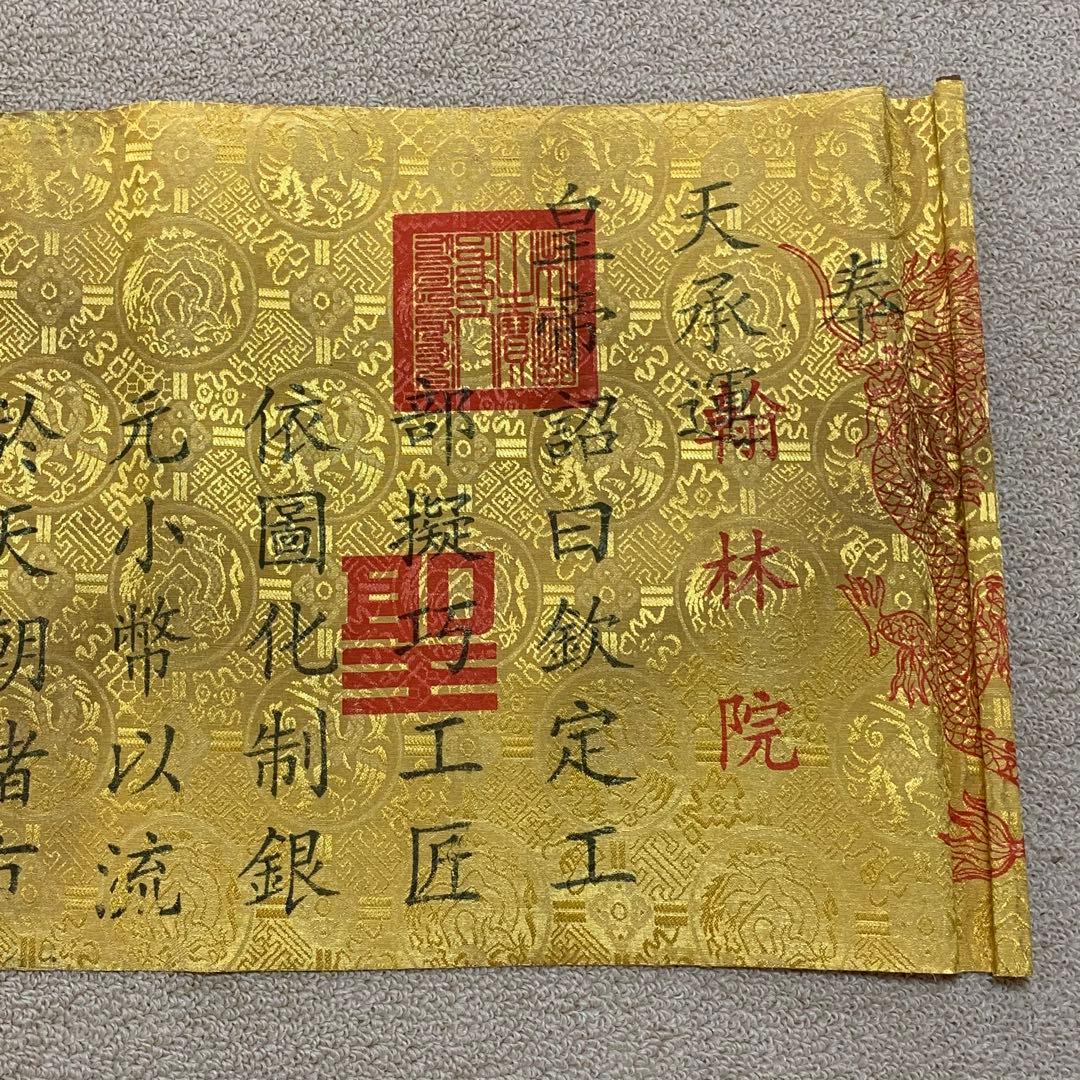 奉
天承運
翰林院
皇帝詔曰欽定工
部擬巧工匠
聖
依圖化制銀
元小幣以流
於天朝諸方